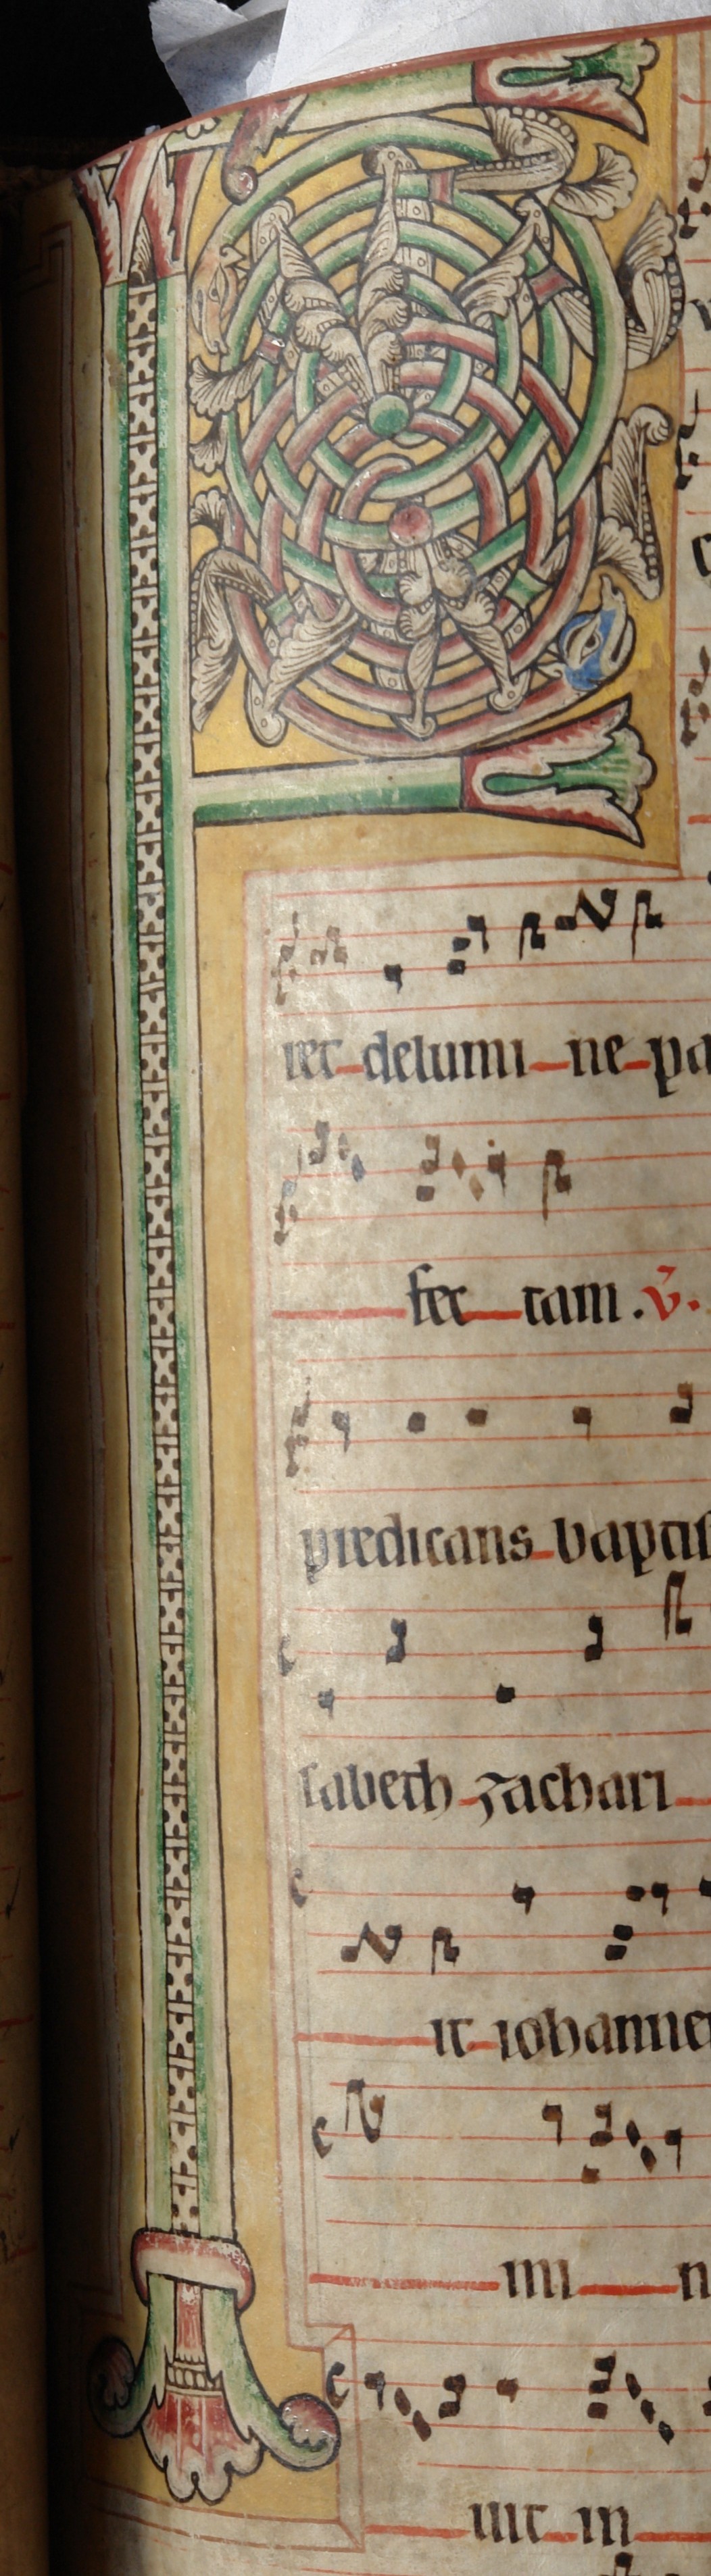 ret delumi-ne pa
fec-tam. v̄.
predicans baptis
sabeth zachari
it iohanne
mi-n
uit in